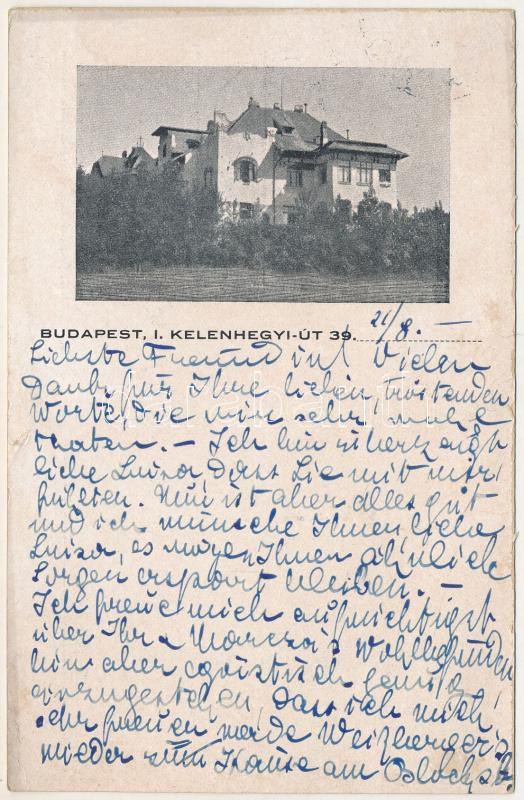 BUDAPEST, I. KELENHEGYI-ÚT 39. 21/8. –
Liebste Freundin! Vielen
Dank für Ihre lieben, tröstenden
Worte, die mir sehr wohl
thaten. – Ich bin überzeugt
liebe Luiza, dass Sie mit mir
fühlten. Nun ist aber alles gut
und ich wünsche Ihnen, liebe
Luiza, es mögen Ihnen ähnlich
Sorgen erspart bleiben. –
Ich freue mich aufrichtigst
über Ihr u Marcza's Wohlbefinden
bin aber egoistisch genug
einzugestehen, dass ich mich
sehr freuen werde Weizberger's
wieder zum Hause am